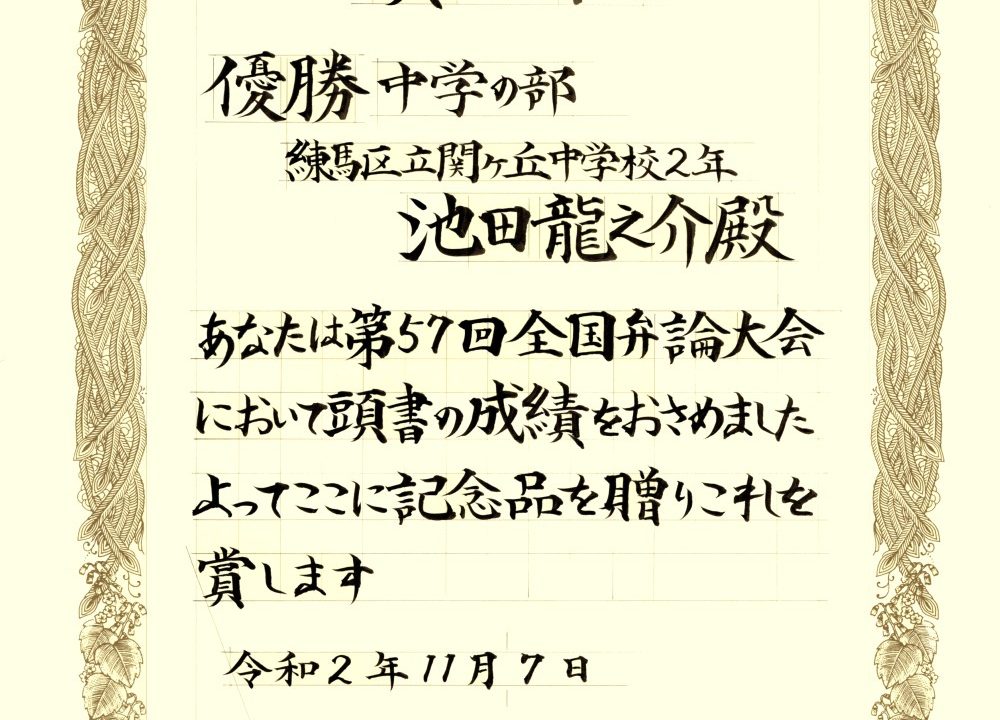 優勝 中学の部
練馬区立関ヶ丘中学校2年
池田龍之介殿
あなたは第57回全国弁論大会
において頭書の成績をおさめました
よってここに記念品を贈りこれを
賞します
令和2年11月7日